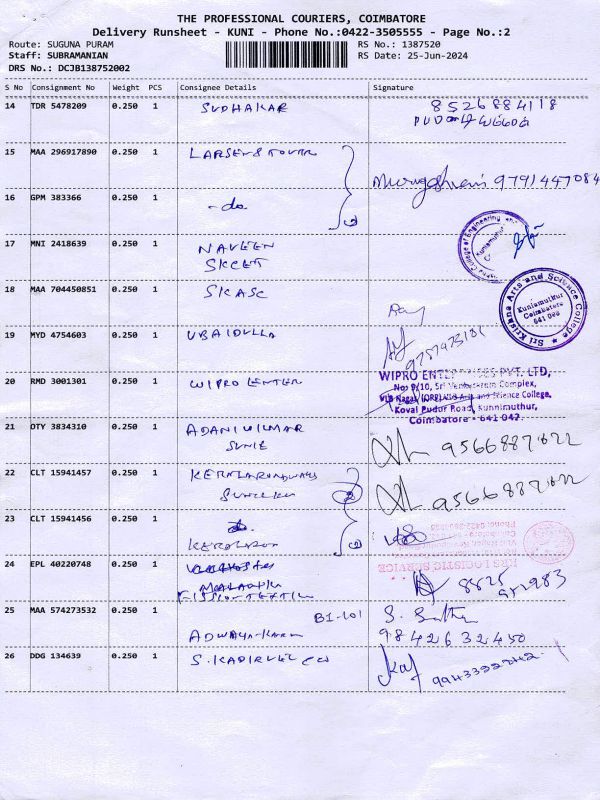 THE PROFESSIONAL COURIERS, COIMBATORE
Delivery Runsheet - KUNI - Phone No.:0422-3505555 - Page No.:2
Route: SUGUNA PURAM RS No.: 1387520
Staff: SUBRAMANIAN RS Date: 25-Jun-2024
DRS No.: DCJB138752002
S No Consignment No Weight PCS Consignee Details Signature
14 TDR 5478209 0.250 1 SUDHAKAR 8526884118
15 MAA 296917890 0.250 1 LARSEN & TOUBRO 9791447084
16 GPM 383366 0.250 1 -do-
17 MNI 2418639 0.250 1 NAVEEN
SKCET
College of Engineering and
Kuniamuthur
18 MAA 704450851 0.250 1 SKASC
Sri Krishna Arts and Science College
Kuniamuthur
Coimbatore
641 008
19 MYD 4754603 0.250 1 UBAIDULLA
20 RMD 3001301 0.250 1 WIPRO ENTER
WIPRO ENTERPRISES PVT. LTD,
No: 9/10, Sri Venkateswara Complex,
VLB Nagar, Arts and Science College,
Kovai Pudur Road, Kunnimuthur,
Coimbatore - 641 042.
21 OTY 3834310 0.250 1 ADANI WILMAR 9566887622
22 CLT 15941457 0.250 1 9566887622
23 CLT 15941456 0.250 1 do.
KRS LOGISTIC SERVICE
24 EPL 40220748 0.250 1 8825
25 MAA 574273532 0.250 1 B1-101
ADWAYA 9842632450
26 DDG 134639 0.250 1 S. KADIRVEL